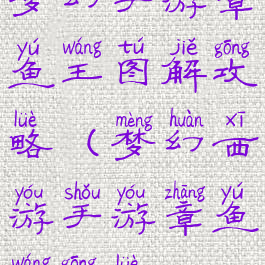 梦幻手游章
yú wáng tú jiě gōng
鱼王图解攻
lüè mèng huàn xī
略（梦幻西
yóu shǒu yóu zhāng yú
游手游章鱼
wáng gōng lüè